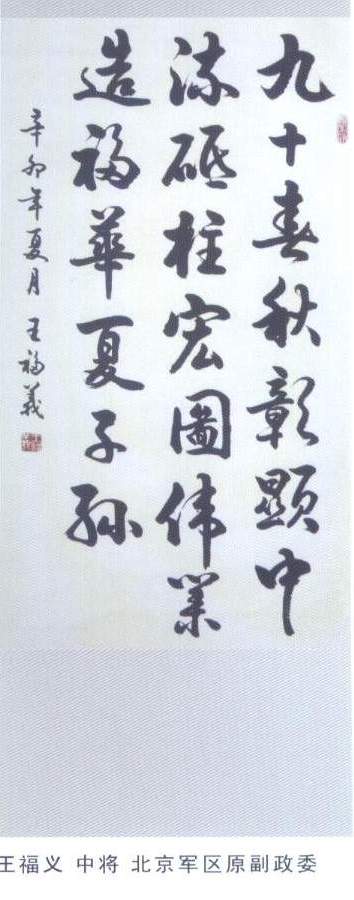 九十春秋彰顯中
流砥柱宏圖伟業
造福華夏子孙
辛卯年夏月 王福義
王福义 中将 北京军区原副政委